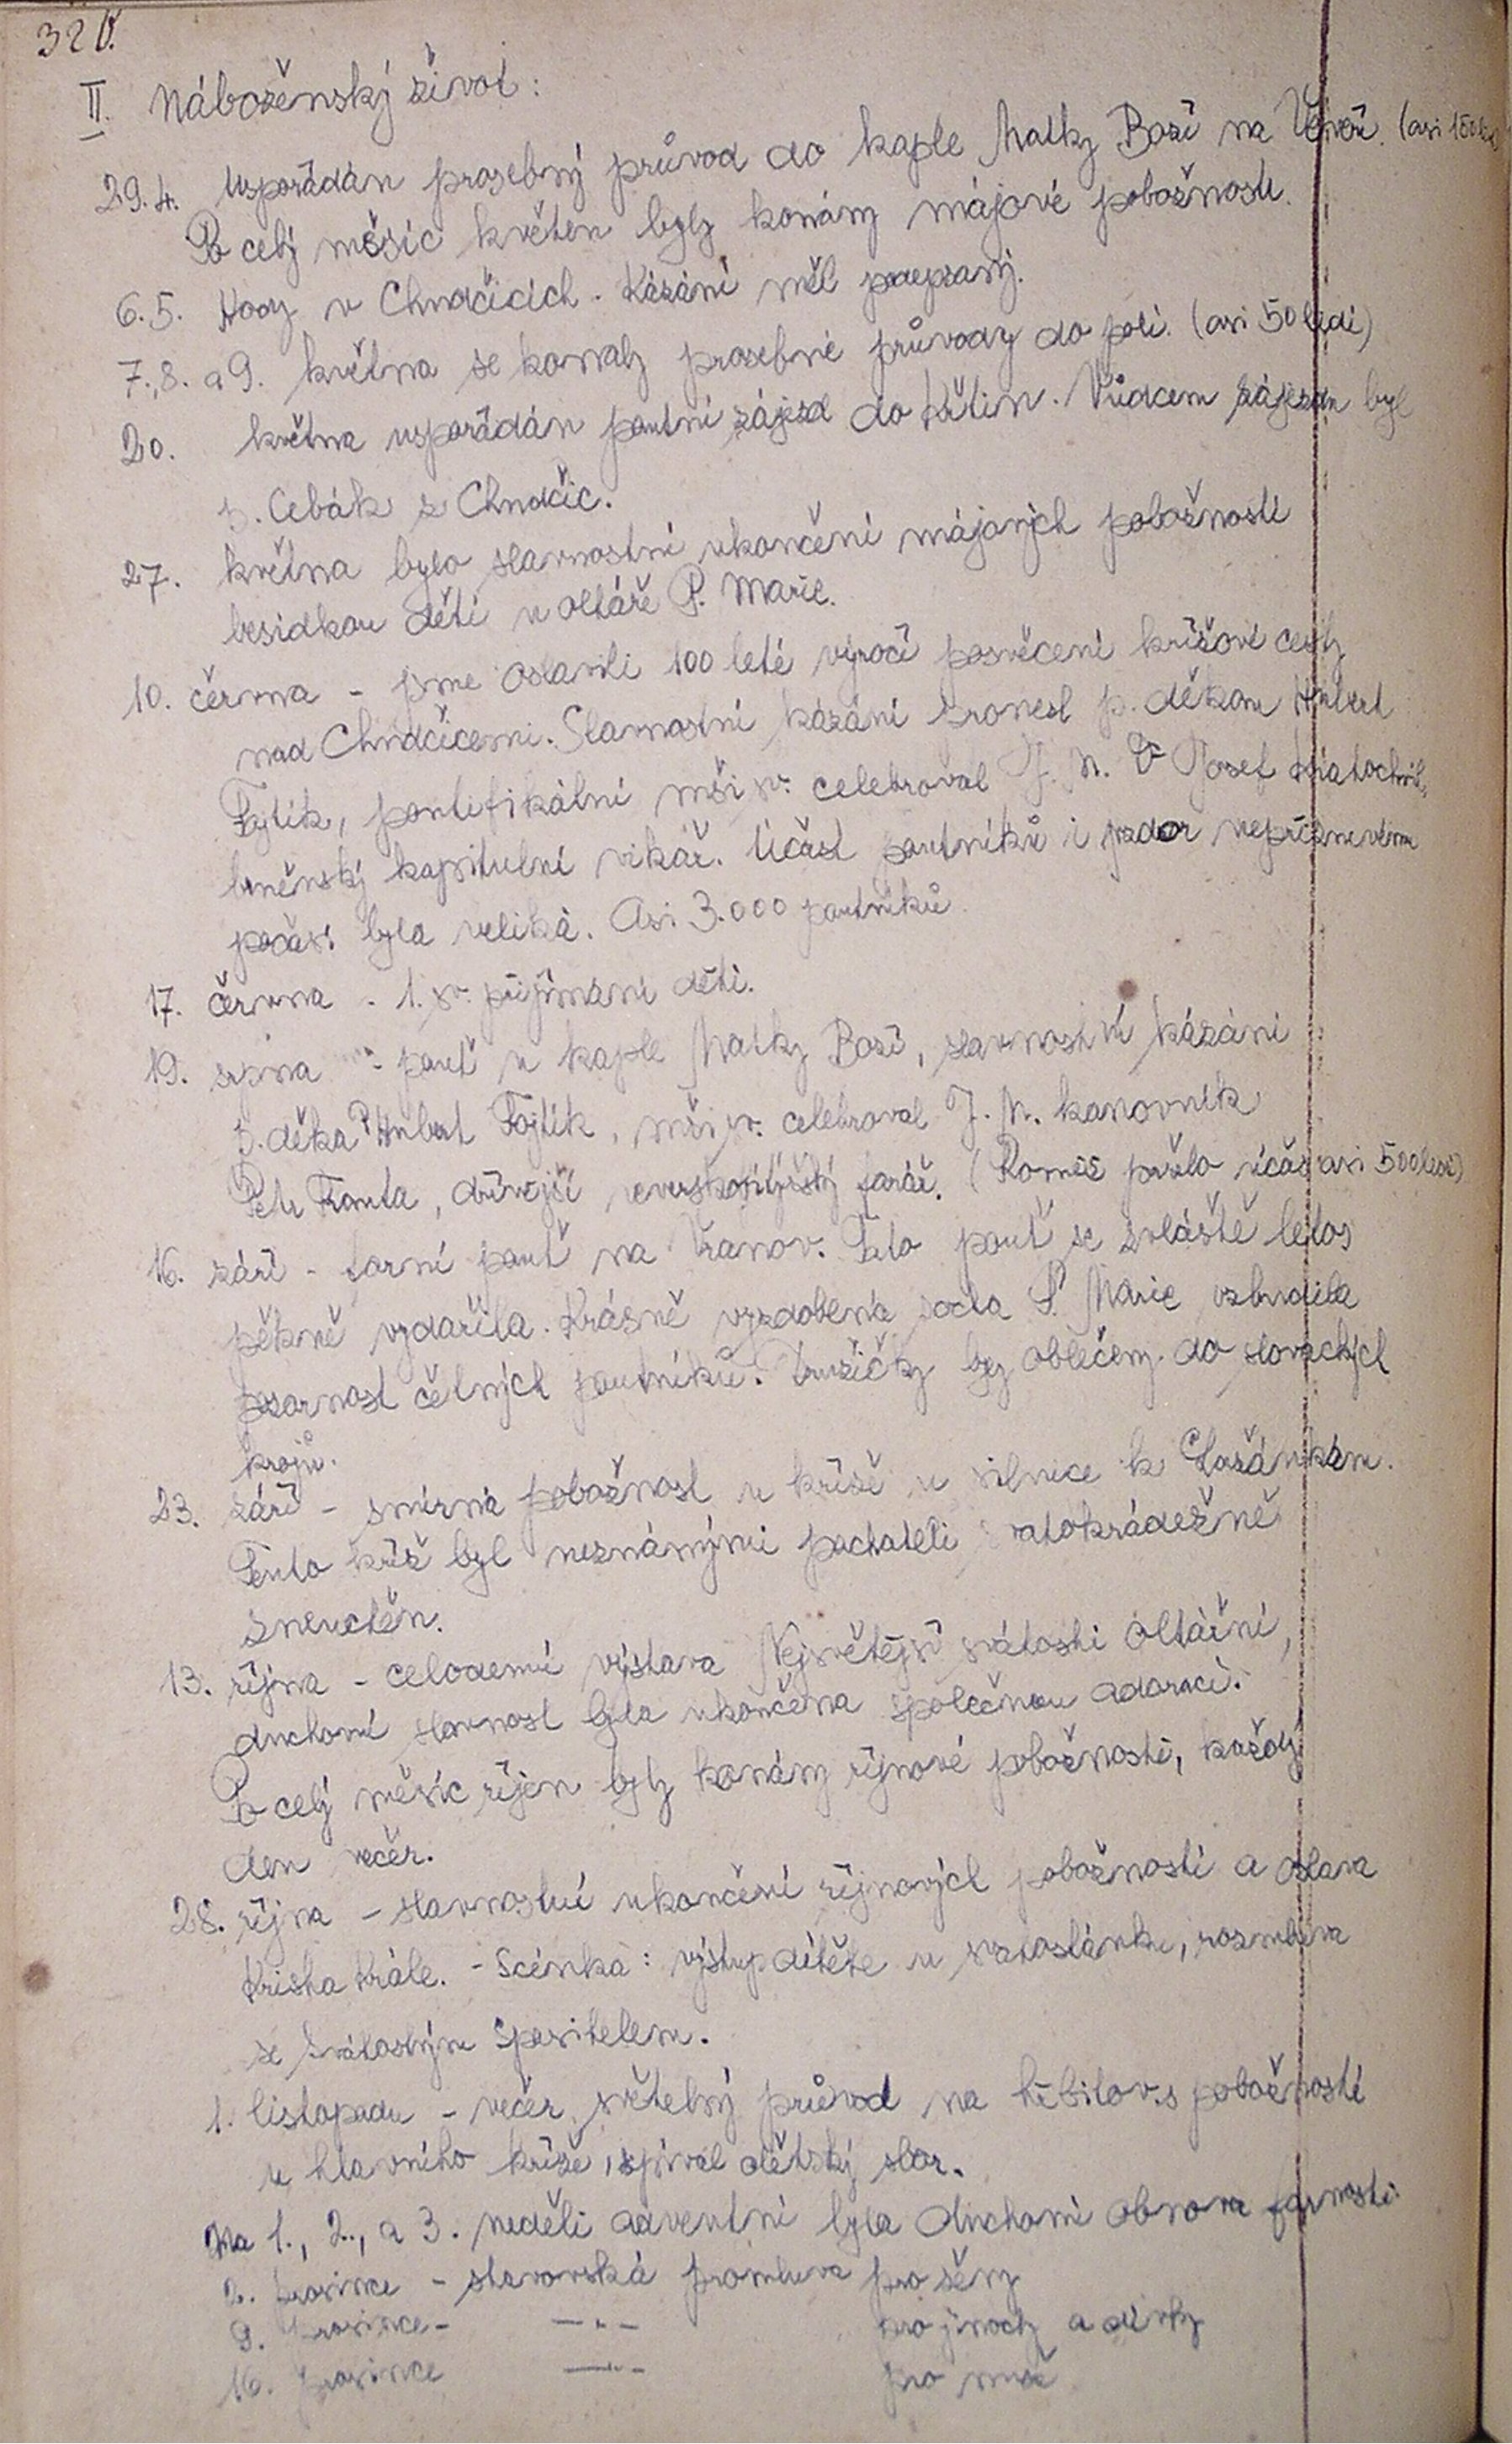 320.
II. Náboženský život:
29.4. Uspořádán prosebný průvod do kaple Matky Boží na Veveří. (asi 150
Po celý měsíc květen byly konány májové pobožnosti.
6.5. Hody v Chudčicích. Kázání měl podepsaný.
7., 8. a 9. května se konaly prosebné průvody do polí. (asi 50 lidí)
20. května uspořádán poutní zájezd do Křtin. Vůdcem zájezdu byl
p. Cebák z Chudčic.
27. května bylo slavnostní ukončení májových pobožností
besídkou dětí u oltáře P. Marie.
10. června - jsme oslavili 100 leté výročí posvěcení křížové cesty
nad Chudčicemi. Slavnostní kázání pronesl p. děkan Hubert
Fajtík, pontifikální mši sv. celebroval J. M. Dr Josef Kratochvíl,
brněnský kapitulní vikář. Účast poutníků i vzdor nepříznivému
počasí byla veliká. Asi 3.000 poutníků.
17. června - 1. sv. přijímání dětí.
19. srpna - pouť u kaple Matky Boží, slavnostní kázání
p. děkan Hubert Fajtík, mši sv. celebroval J. M. kanovník
Petr Franta, dřívější farář. (Rovněž pršelo účast asi 500 lidí)
16. září - farní pouť na Vranov. Tato pouť se zvláště letos
pěkně vydařila. Krásně vyzdobená socha P. Marie vzbudila
pozornost četných poutníků. Družičky byly oblečeny do slováckých
krojů.
23. září - smírná pobožnost u kříže u silnice k Lažánkám.
Tento kříž byl neznámými pachateli svatokrádežně
zneuctěn.
13. října - celodenní výstava Nejsvětější svátosti Oltářní,
duchovní slavnost byla ukončena společnou adorací.
Po celý měsíc říjen byly konány říjnové pobožnosti, každý
den večer.
28. října - slavnostní ukončení říjnových pobožností a oslava
Krista Krále. - Scénka: výstup dítěte u svatostánku, rozmluva
se Svátostným Spasitelem.
1. listopadu - večer světelný průvod na hřbitov s pobožností
u hlavního kříže, zpíval dětský sbor.
Na 1., 2., a 3. neděli adventní byla duchovní obnova farnosti.
2. prosince - stavovská promluva pro ženy
9. prosince - —"— pro jinochy a dívky
16. prosince —"— pro muže